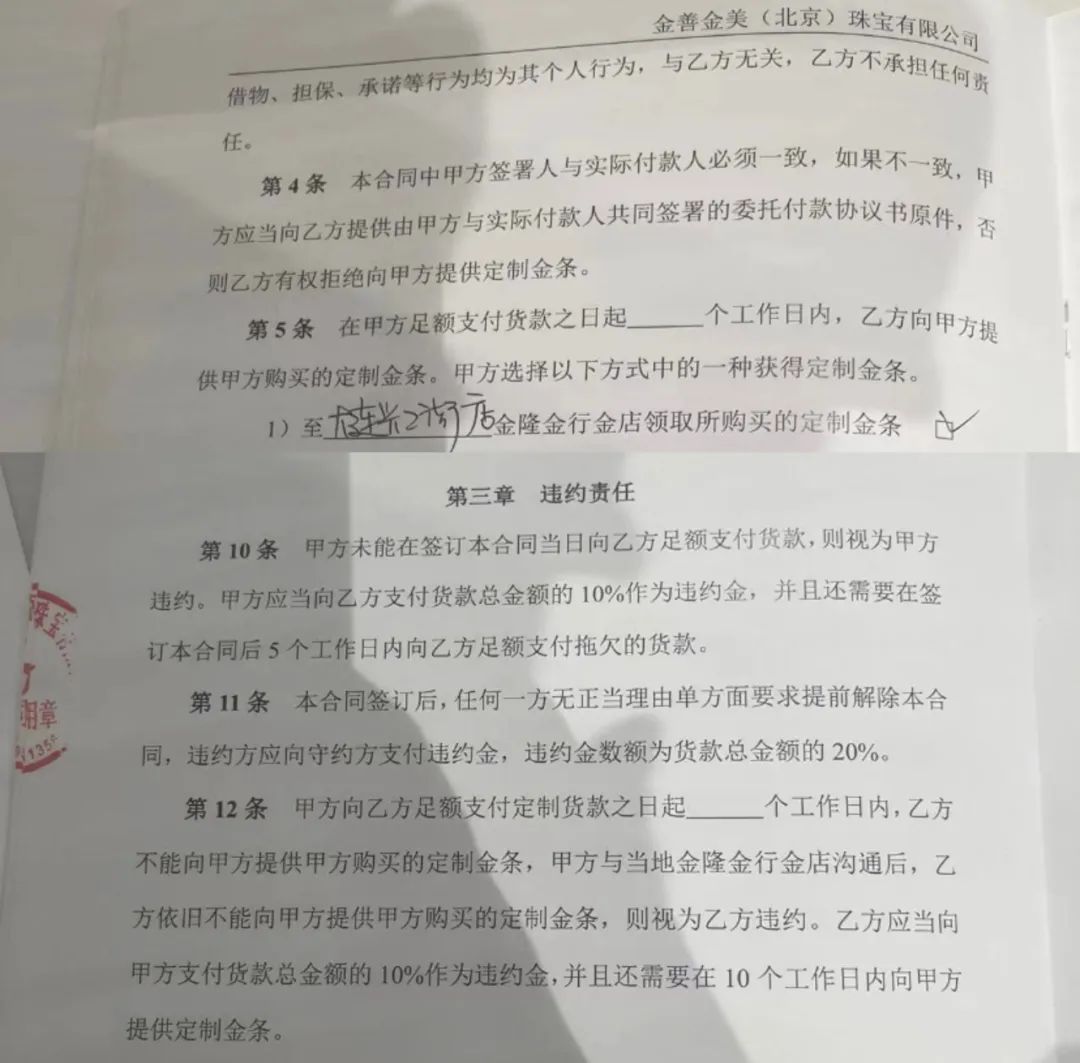 金善金美（北京）珠宝有限公司
借物、担保、承诺等行为均为其个人行为，与乙方无关，乙方不承担任何责
任。
第4条 本合同中甲方签署人与实际付款人必须一致，如果不一致，甲
方应当向乙方提供由甲方与实际付款人共同签署的委托付款协议书原件，否
则乙方有权拒绝向甲方提供定制金条。
第5条 在甲方足额支付货款之日起______个工作日内，乙方向甲方提
供甲方购买的定制金条。甲方选择以下方式中的一种获得定制金条。
1）至 店金隆金行金店领取所购买的定制金条 ☑
第三章 违约责任
第10条 甲方未能在签订本合同当日向乙方足额支付货款，则视为甲方
违约。甲方应当向乙方支付货款总金额的10%作为违约金，并且还需要在签
订本合同后5个工作日内向乙方足额支付拖欠的货款。
第11条 本合同签订后，任何一方无正当理由单方面要求提前解除本合
同，违约方应向守约方支付违约金，违约金数额为货款总金额的20%。
第12条 甲方向乙方足额支付定制货款之日起______个工作日内，乙方
不能向甲方提供甲方购买的定制金条，甲方与当地金隆金行金店沟通后，乙
方依旧不能向甲方提供甲方购买的定制金条，则视为乙方违约。乙方应当向
甲方支付货款总金额的10%作为违约金，并且还需要在10个工作日内向甲方
提供定制金条。
珠宝
用章